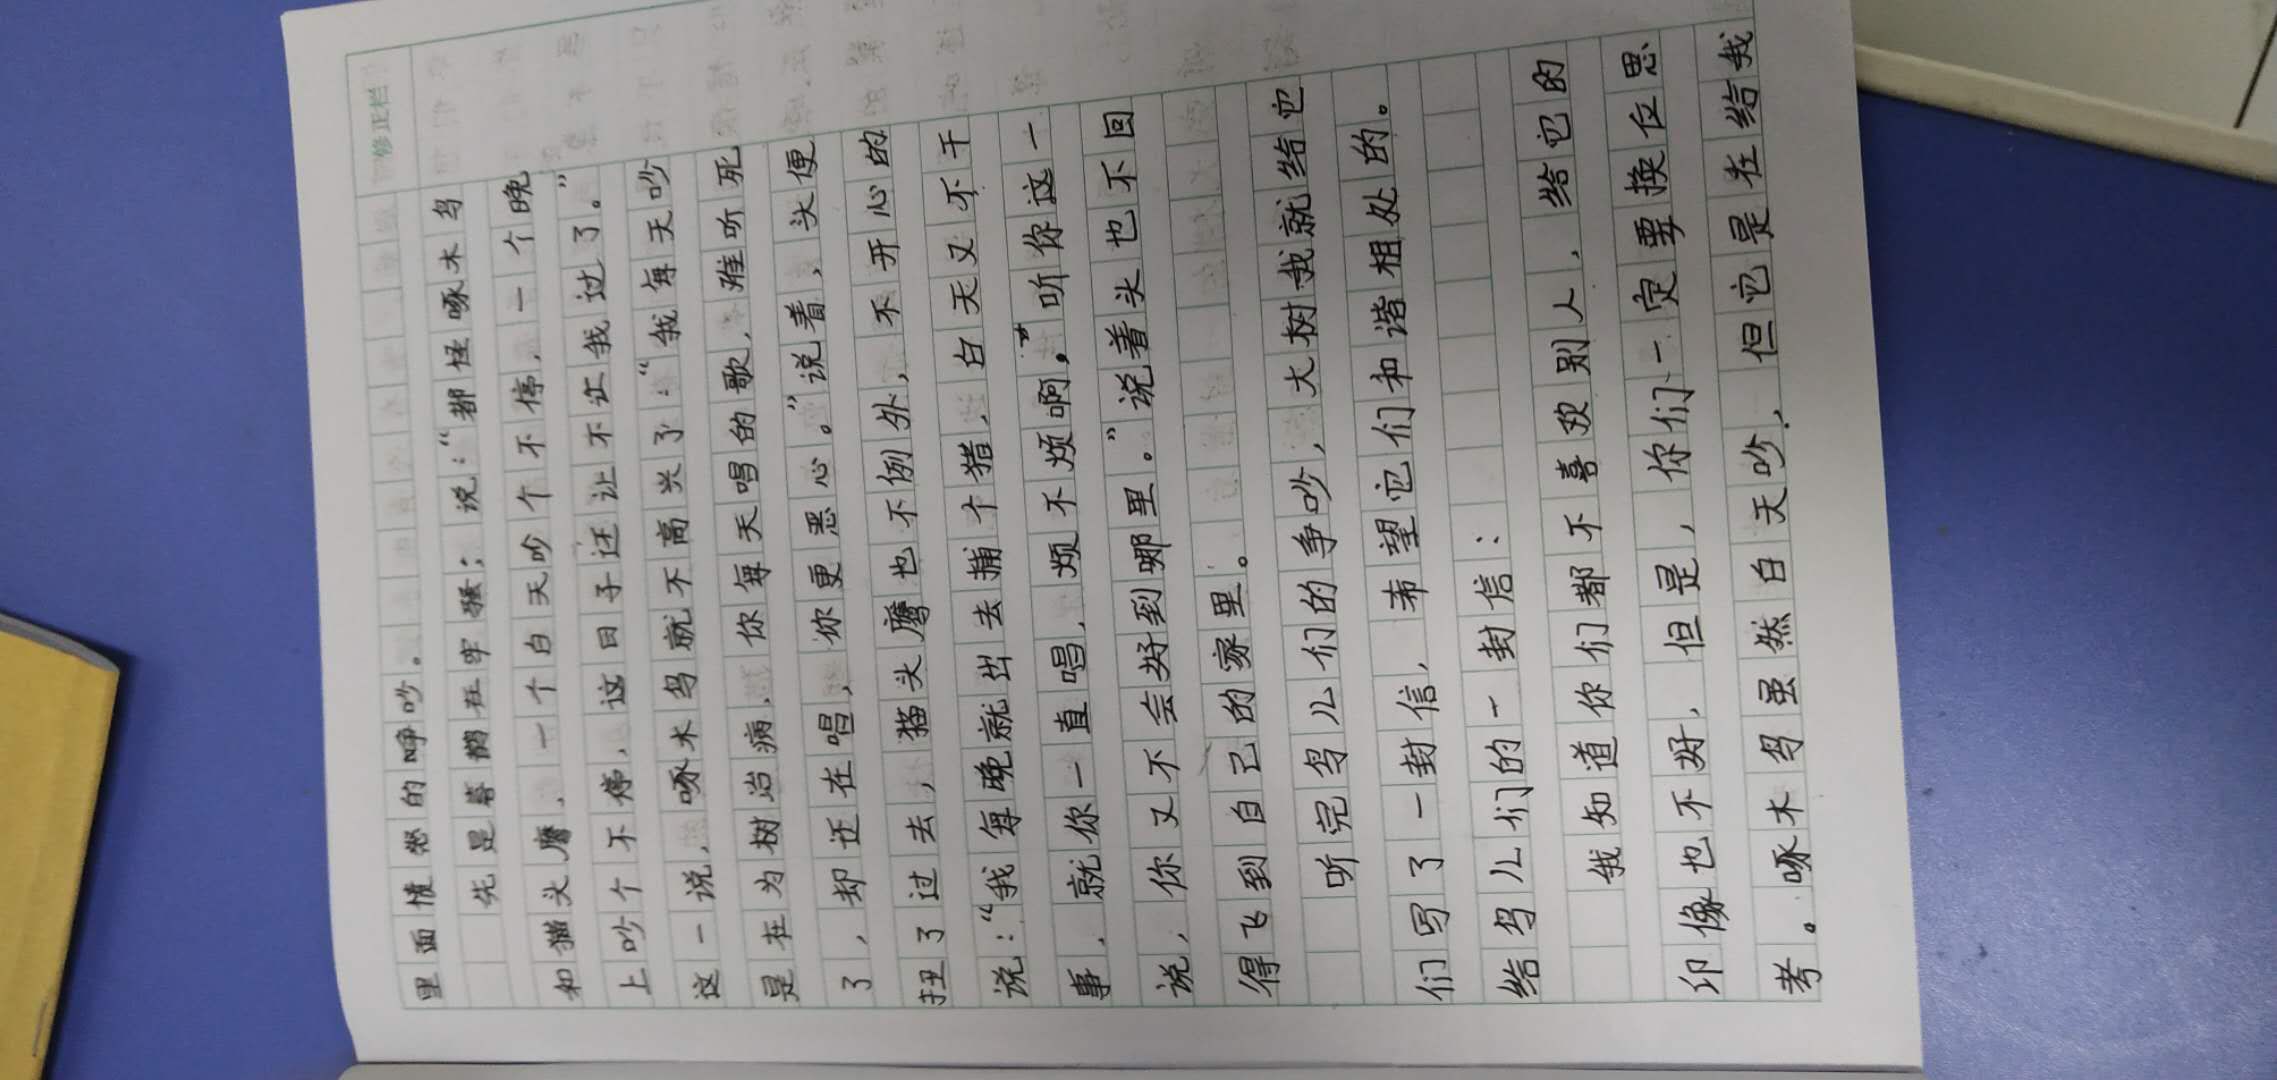 修正栏
里面愤怒的哰吵。
先是喜鹊在牢骚：说：“都怪啄木鸟
和猫头鹰，一个白天吵个不停，一个晚
上吵个不停，这日子还让不让我过了。”
这一说，啄木鸟就不高兴了：“我每天吵
是在为树治病，你每天唱的歌，难听死
了，却还在唱，你更恶心。”说着，头便
扭了过去，猫头鹰也不例外，不开心的
说：“我每晚就出去捕个猎，白天又不干
事，就你一直唱，烦不烦啊，”听你这一
说，你又不会好到哪里。”说着头也不回
得飞到自己的家里。
听完鸟儿们的争吵，大树我就给它
们写了一封信，希望它们和谐相处的。
给鸟儿们的一封信：
我知道你们都不喜欢别人，给它的
印像也不好，但是，你们一定要换位思
考。啄木鸟虽然白天吵，但它是在给我